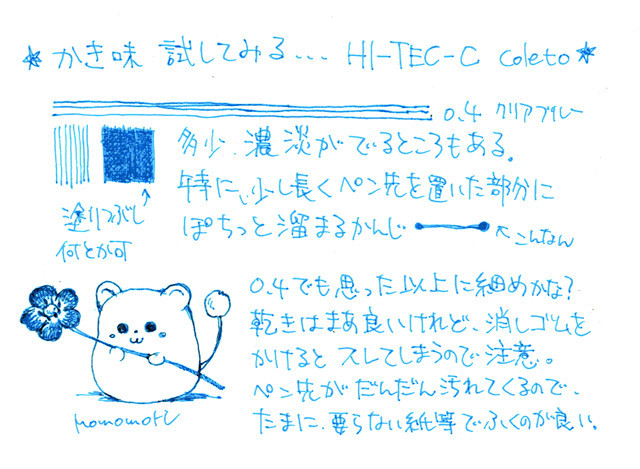 ★かき味 試してみる... HI-TEC-C coleto★
0.4 クリアブルー
多少、濃淡がでるところもある。
特に、少し長くペン先を置いた部分に
ぽちっと溜まるかんじ
←こんなん
塗りつぶし
何とか可
0.4でも思った以上に細めかな?
乾きはまあ良いけれど、消しゴムを
かけると スレてしまうので注意。
ペン先が だんだん汚れてくるので、
たまに、要らない紙等でふくのが良い。